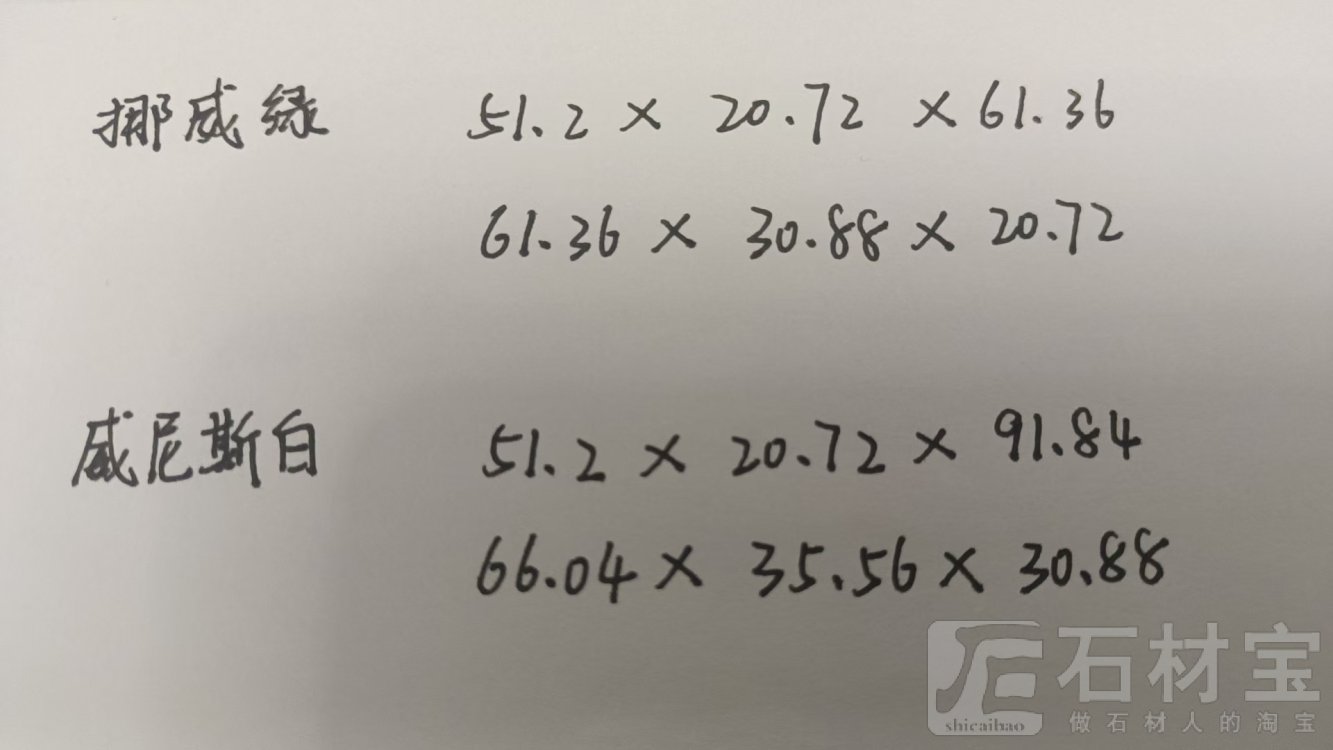 挪威绿 51.2 × 20.72 × 61.36
61.36 × 30.88 × 20.72
威尼斯白 51.2 × 20.72 × 91.84
66.04 × 35.56 × 30.88
石材宝
shicaibao
做石材人的淘宝